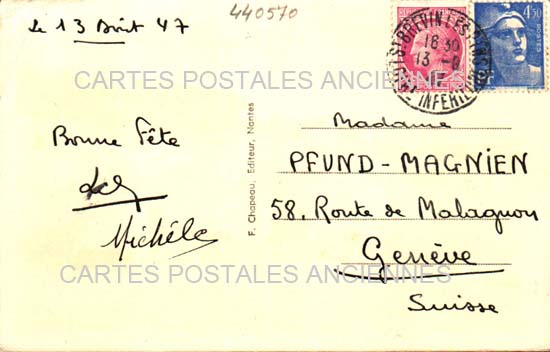 440570
Le 13 Août 47
ST BREVIN LES PINS
16 30
13 -8
INFERIEURE
4F50
POSTES
CARTES POSTALES ANCIENNES
Madame
Bonne fête
PFUND-MAGNIEN
58, Route de Malagnou
Michèle
Genève
CARTES POSTALES ANCIENNES
Suisse
F. Chapeau, Editeur, Nantes